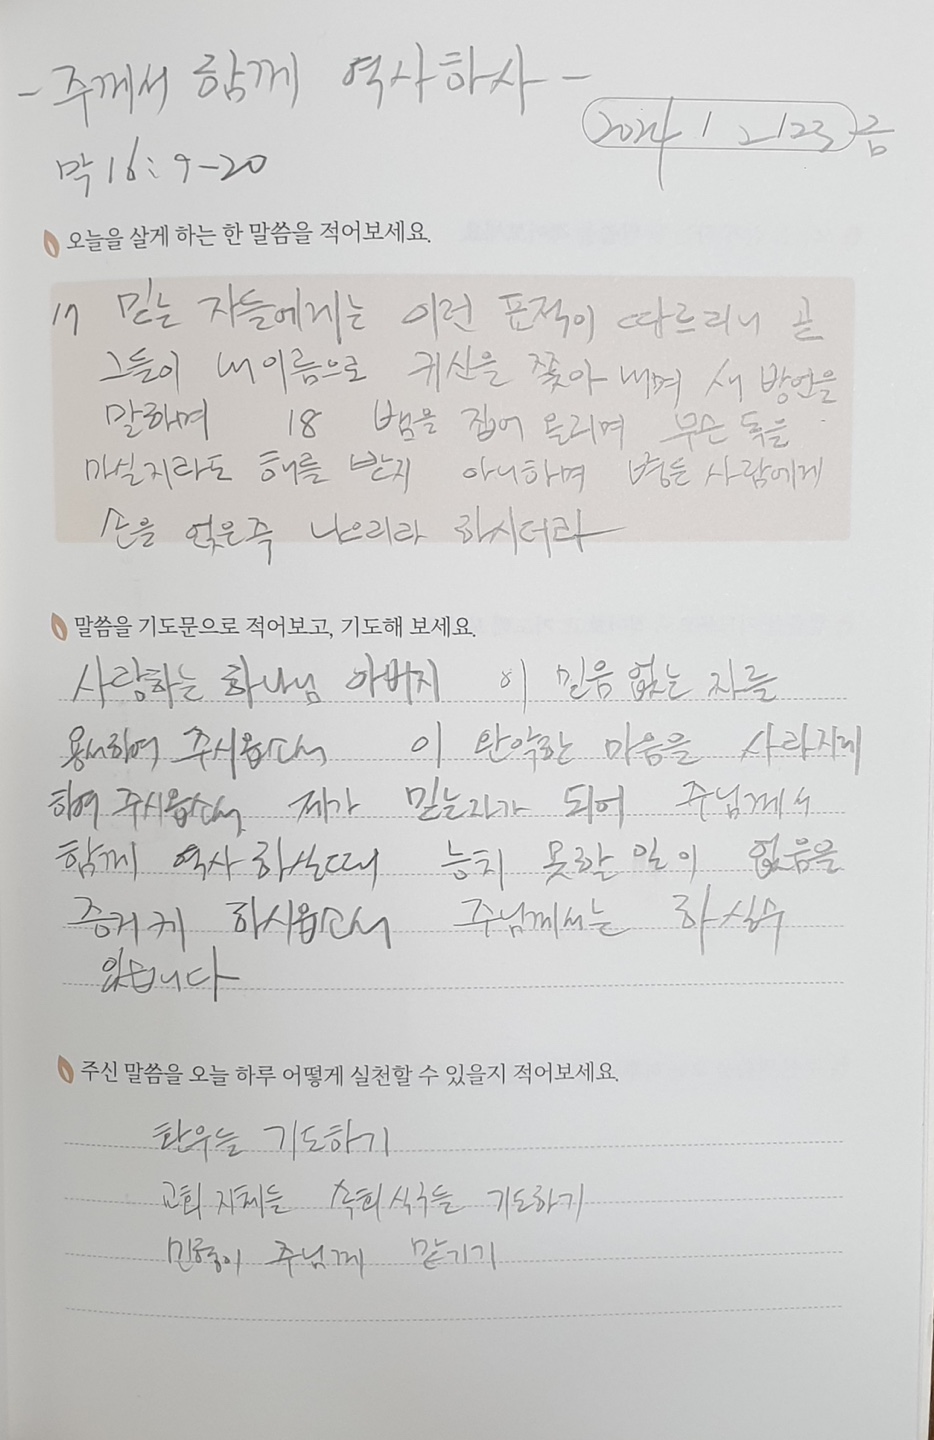 - 주께서 함께 역사하사 -
2024 / 2 / 23 금
막 16 : 9 - 20
오늘을 살게 하는 한 말씀을 적어보세요.
17 믿는 자들에게는 이런 표적이 따르리니 곧
그들이 내 이름으로 귀신을 쫓아 내며 새 방언을
말하며 18 뱀을 집어 올리며 무슨 독을
마실지라도 해를 받지 아니하며 병든 사람에게
손을 얹은즉 나으리라 하시더라
말씀을 기도문으로 적어보고, 기도해 보세요.
사랑하는 하나님 아버지 이 믿음 없는 자를
용서하여 주시옵소서 이 완악한 마음을 사라지게
하여 주시옵소서 제가 믿는자가 되어 주님께서
함께 역사 하실때 능치 못할 일이 없음을
증거케 하시옵소서 주님께서는 하실수
있습니다
주신 말씀을 오늘 하루 어떻게 실천할 수 있을지 적어보세요.
환우들 기도하기
교회 지체들 속회식구들 기도하기
주님께 맡기기